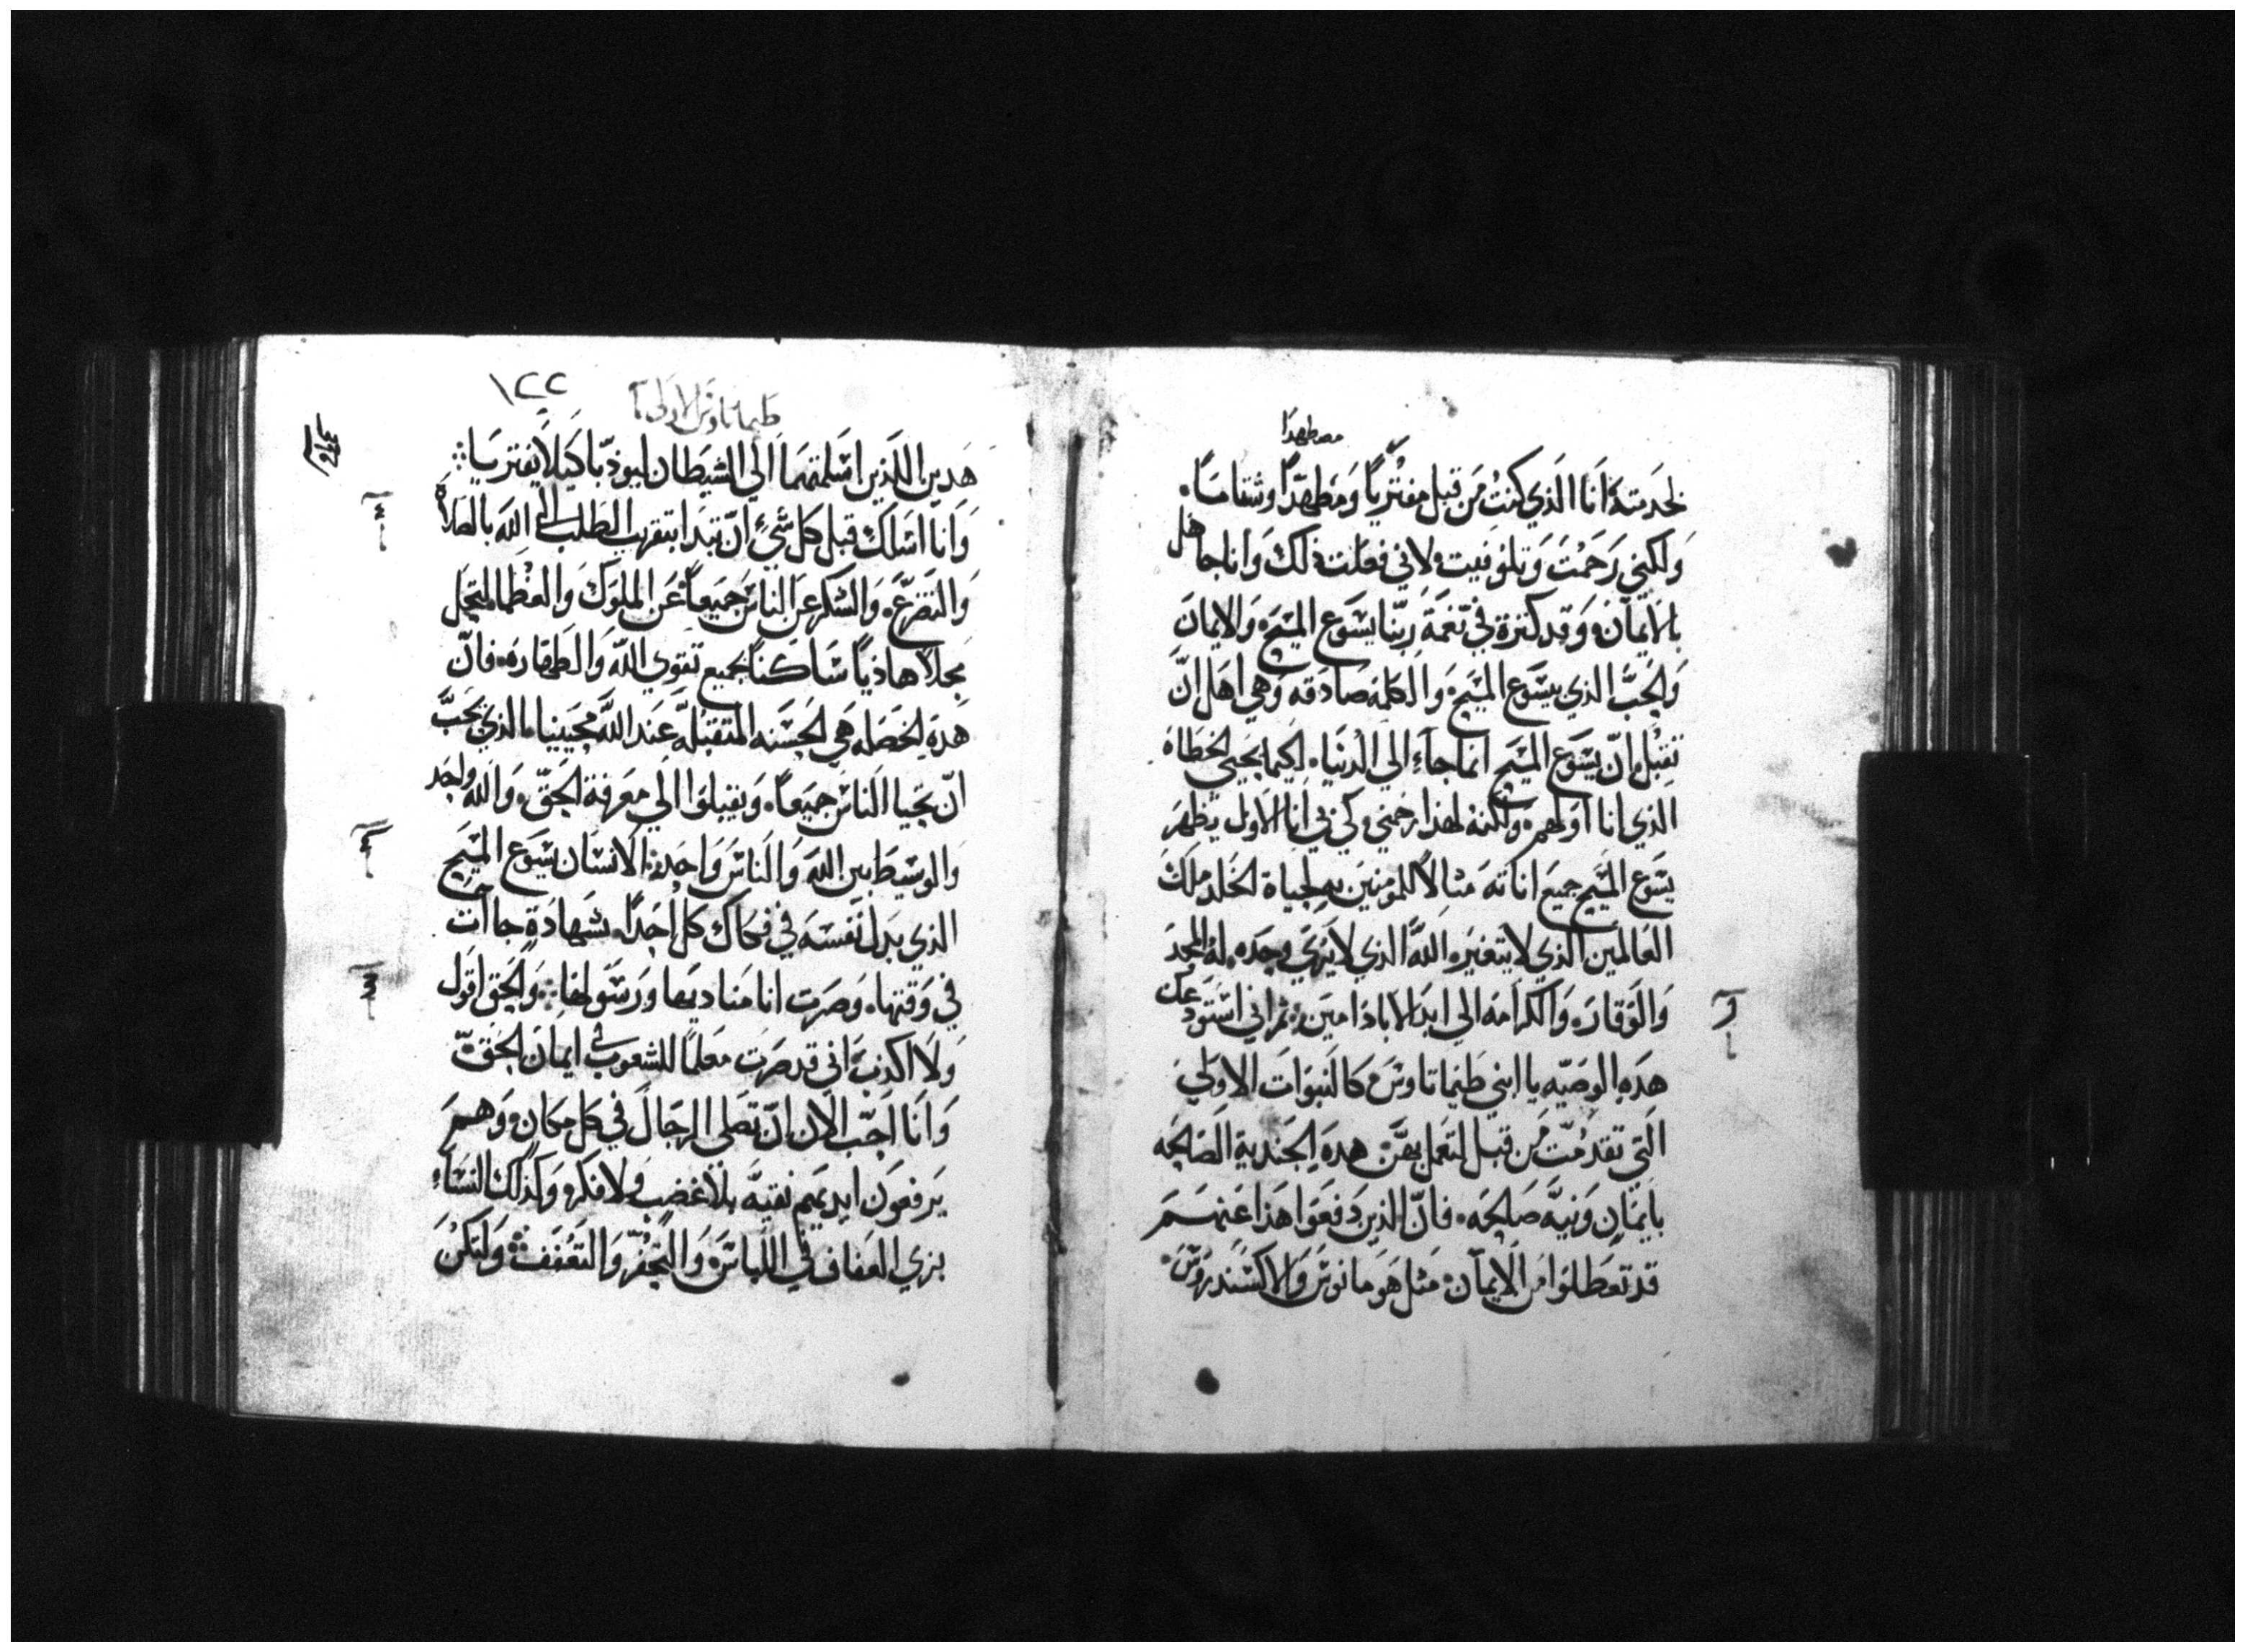 مصطهدا
لخدمته انا الذي كنت من قبل مفتريا ومطهدا وشتاما.
ولكني رحمت وتلوفيت لاني فعلت ذلك وانا جاهل
بالايمان وقد كثرة في نعمة ربنا يسوع المسيح والايمان
والحب الذي يسوع المسيح والكلمه صادقه وهي اهل ان
تقبل ان يسوع المسيح انما جاء الي الدنيا. لكيما يحيي الخطاه
الذي انا اولهم ولكنه لهذا رحمني وكي في انا الاول يظهر
يسوع المسيح جميع اناته مثالا للمومنين به لحياة الخلد ملك
العالمين الذي لا يتغير. الله الذي لا يري وحده. له المجد
والوقار والكرامه الي ابد الاباد امين ثم اني استودعك
هذه الوصيه يا ابني طيماتاوس كالنبوات الاولي
التي تقدمت من قبل لتعمل بهن هذه الجنديه الصالحه
بايمان ونيه صالحه. فان الذين دفعوا هذا عنهم
قد تعطلوا من الايمان مثل هومانوس والاكسندروس
١٢٢
طيماتاوس الاولي
هدين اللذين اسلمتهما الي الشيطان ليوذبا كيلا يفتريا
وانا اسلك قبل كل شي ان تبدا بتقريب الطلب الي الله بالصلاة
والتضرع والشكر عن الناس جميعا عن الملوك والعظما لتحل
محلا هاذيا ساكنا بجميع تقوي الله والطهاره. فان
هذه الخصله هي الحسنه المتقبله عند الله محيينا. الذي يحب
ان يحيا الناس جميعا. ويقبلوا الي معرفة الحق. والله واحد
والوسيط بين الله والناس واحد الانسان يسوع المسيح
الذي بدل نفسه في فكاك كل احدا. بشهادة جاات
في وقتها. وصرت انا مناديها ورسولها والحق اقول
ولا اكذب اني قد صرت معلما للشعوب في ايمان الحق
وانا احب الان ان تصلي الرجال في كل مكان وهم
يرفعون ايديهم نقيه بلا غضب ولا فكر وكذلك النساء
بزي العفاف في اللباس والتخفر والتعفف ولتكن